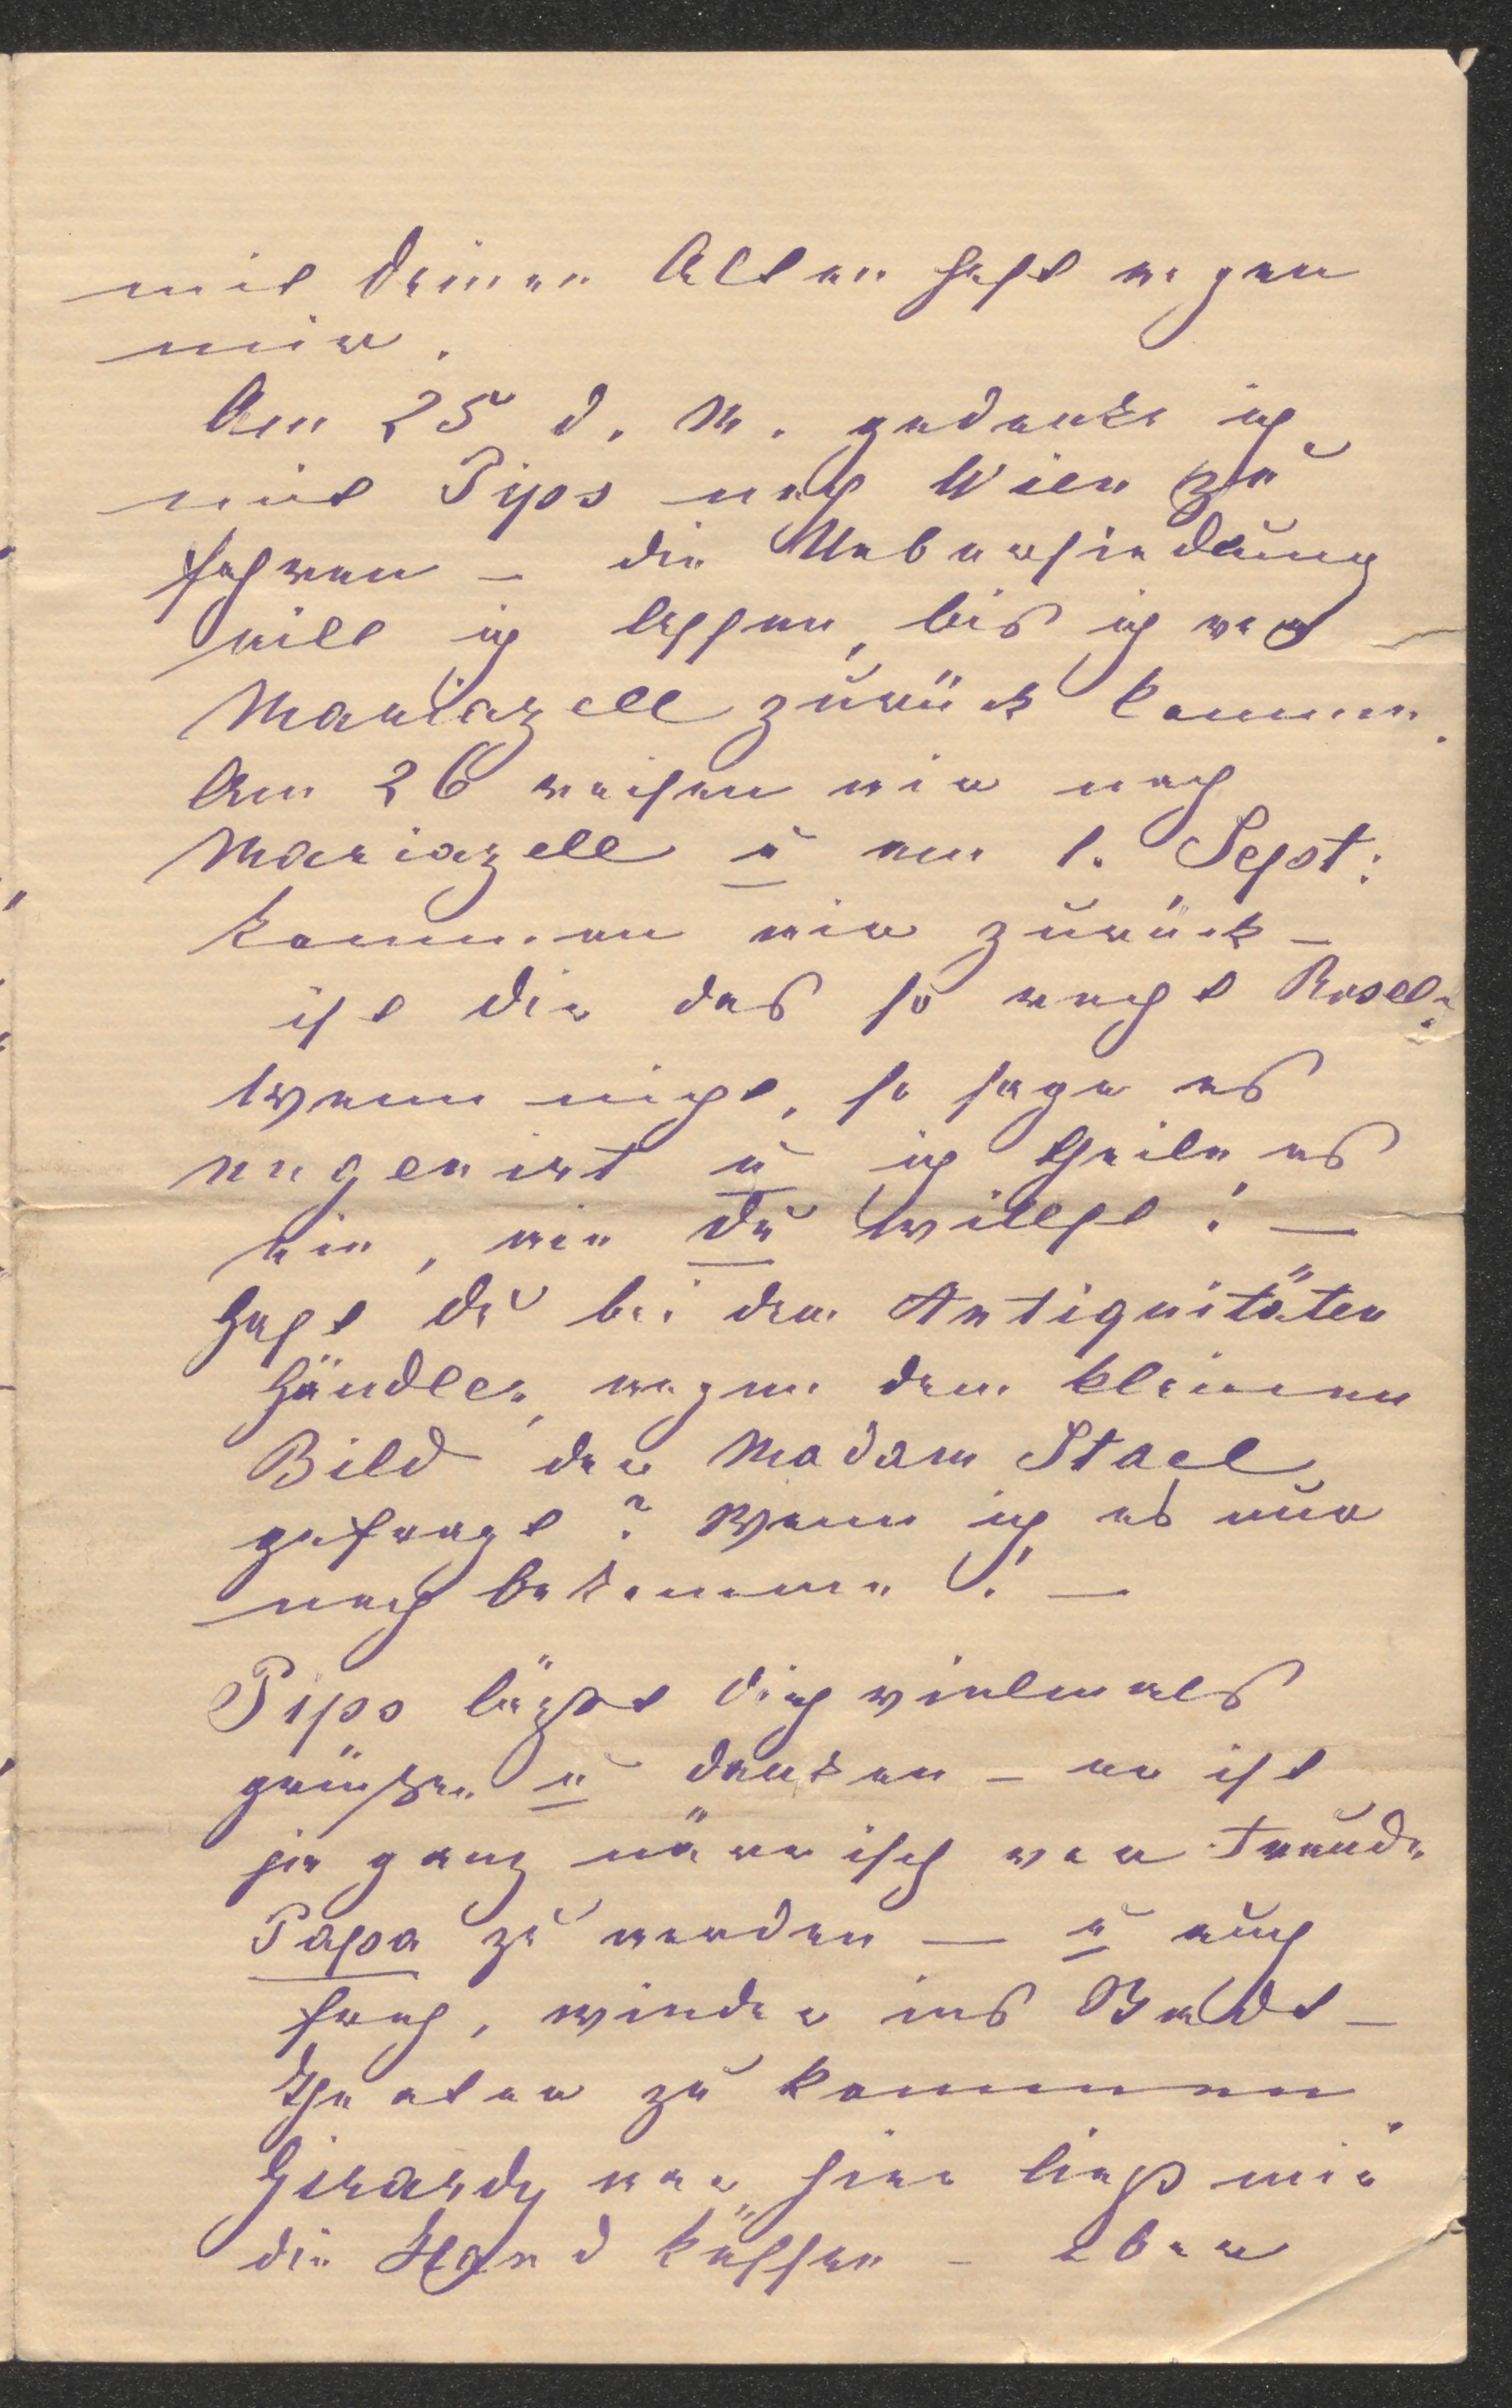 mit Deinen Alten hast wegen
mir.
Am 25 d. M. gedenke ich
mit Pips nach Wien zu
fahren – die Uebersiedlung
will ich lassen, bis ich von
Mariazell zurück komme.
Am 26 reisen wir nach
Mariazell u am 1. Sept:
kommen wir zurück –
ist dir das so recht Rosel?
Wenn nicht, so sage es
ungenirt u ich theile es
ein, wie Du willst! –
Hast du bei dem Antiquitäten
Händler, wegen dem kleinen
Bild der Madam Stael
gefragt? Wenn ich es nur
noch bekomme! –
Pips läßt dich vielmals
grüßen u danken – er ist
ja ganz närrisch vor Freude
Papa zu werden – u auch
froh, wieder ins Stadt-
theater zu kommen.
Girardy war hier ließ mir
die Hand küssen – aber